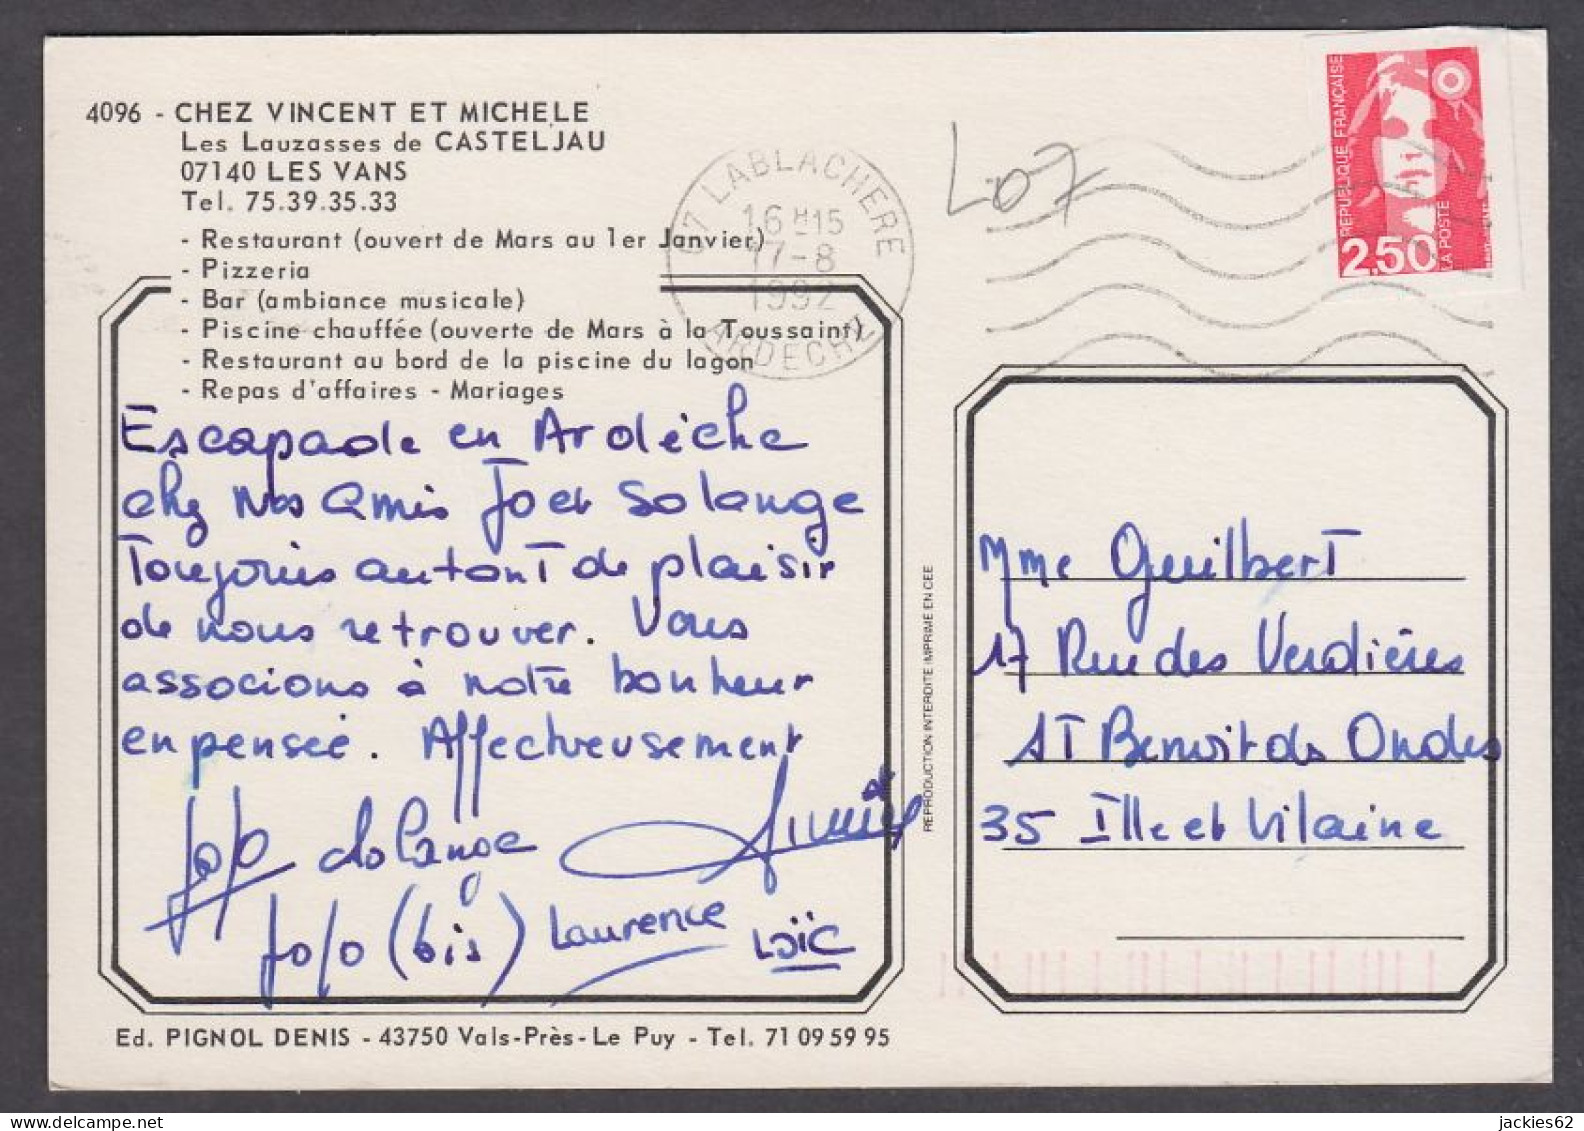 4096 - CHEZ VINCENT ET MICHELE
Les Lauzasses de CASTELJAU
07140 LES VANS
Tel. 75.39.35.33
- Restaurant (ouvert de Mars au 1er Janvier)
- Pizzeria
- Bar (ambiance musicale)
- Piscine chauffée (ouverte de Mars à la Toussaint)
- Restaurant au bord de la piscine du lagon
- Repas d'affaires - Mariages
07 LABLACHERE
16H15
17-8
1992
ARDECHE
L07
REPUBLIQUE FRANÇAISE
LA POSTE
2,50
Escapade en Ardèche
chez nos amis Jo et Solange
Toujours autant de plaisir
de nous retrouver. Vous
associons à notre bonheur
en pensée. Affectueusement
Jojo Solange
Jojo (bis) Laurence Loïc
REPRODUCTION INTERDITE IMPRIME EN CEE
Mme Guilbert
17 Rue des Verdières
ST Benoit des Ondes
35 Ille et Vilaine
Ed. PIGNOL DENIS - 43750 Vals-Près-Le Puy - Tel. 71 09 59 95
jackies62